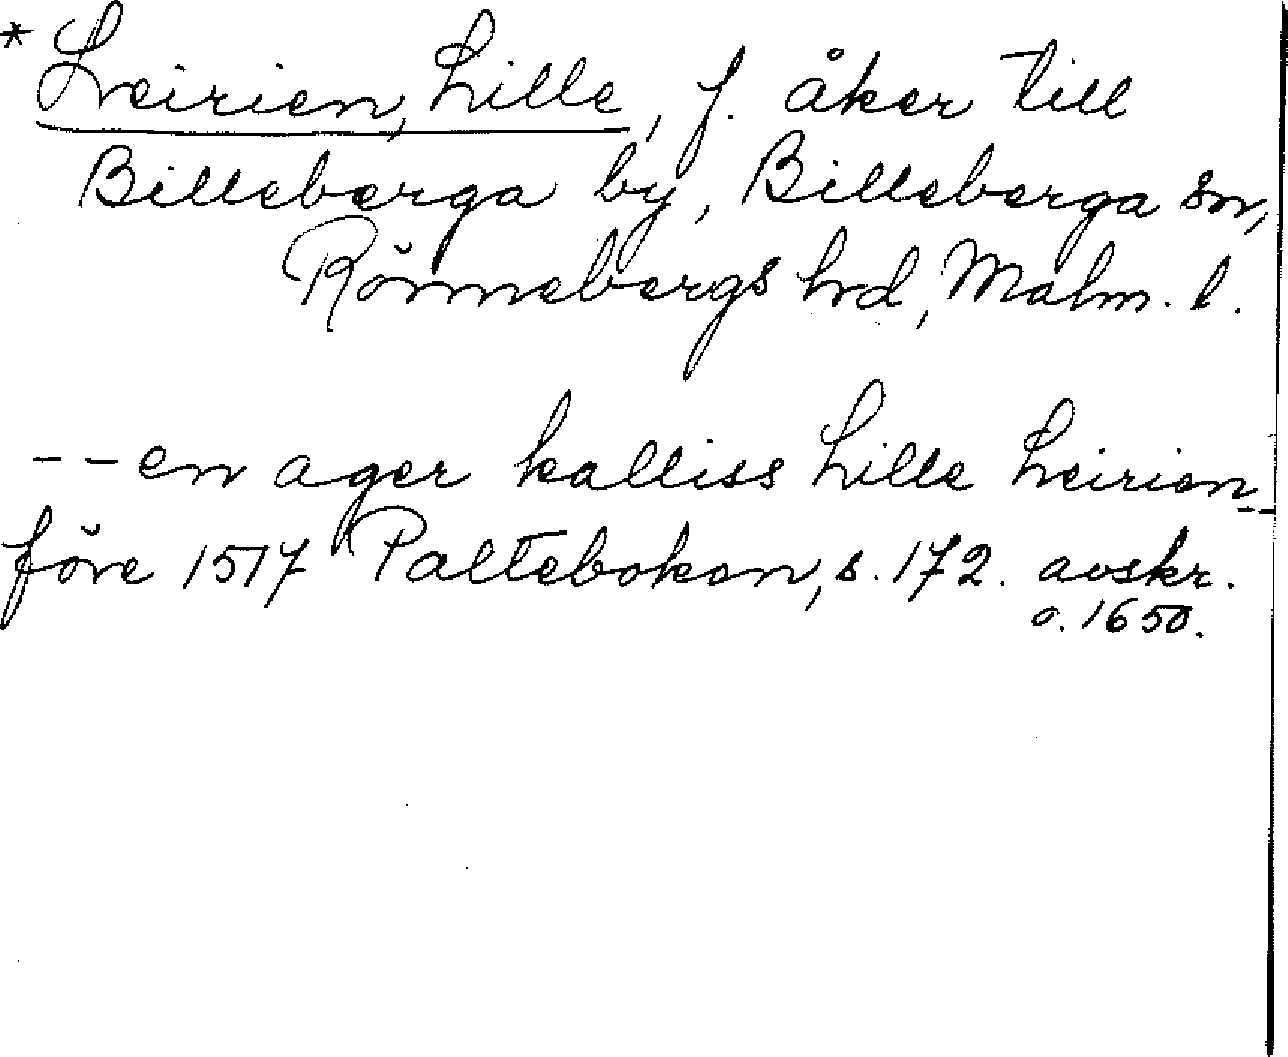 * Leirien, Lille, f. åker till
Billeberga by, Billeberga sn,
Rönnebergs hrd, Malm. l.
-- en ager kalliss Lille Leirien --
före 1517 Paltebokon, s. 172. avskr.
o. 1650.